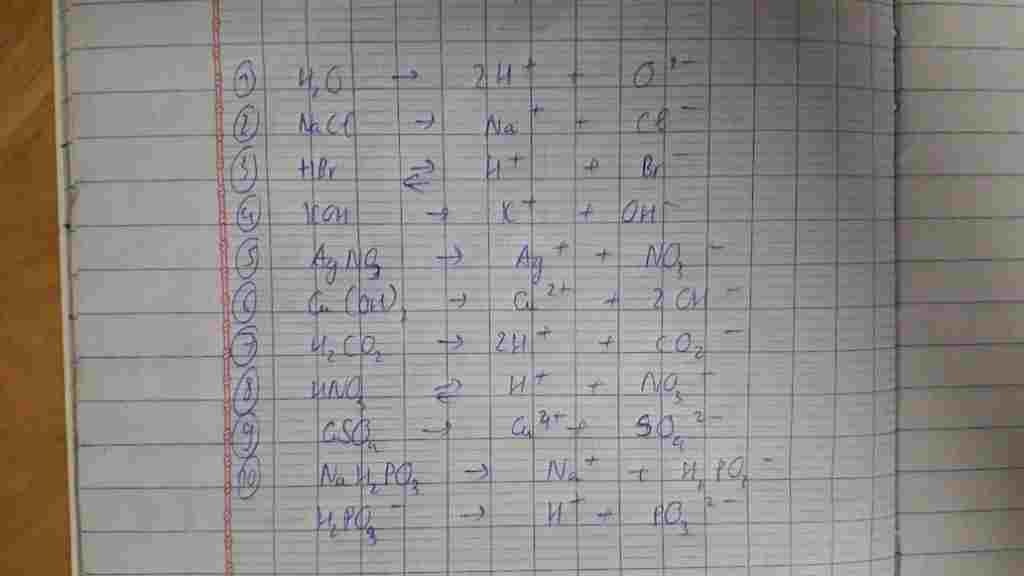 ① H₂O → 2H⁺ + O²⁻
② NaCl → Na⁺ + Cl⁻
③ HBr ⇄ H⁺ + Br⁻
④ KOH → K⁺ + OH⁻
⑤ AgNO₃ → Ag⁺ + NO₃⁻
⑥ Cu(OH)₂ → Cu²⁺ + 2OH⁻
⑦ H₂CO₂ → 2H⁺ + CO₂⁻
⑧ HNO₃ ⇄ H⁺ + NO₃⁻
⑨ CuSO₄ → Cu²⁺ + SO₄²⁻
⑩ NaH₂PO₃ → Na⁺ + H₂PO₃⁻
H₂PO₃⁻ → H⁺ + PO₃²⁻